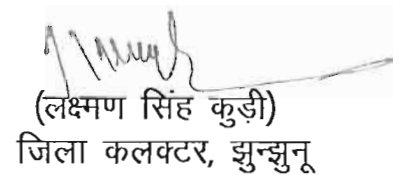 (लक्ष्मण सिंह कुड़ी)
जिला कलक्टर, झुन्झुनू